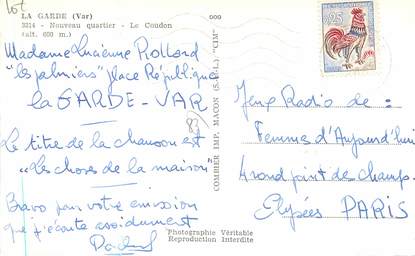 Lot
LA GARDE (Var)
3214 - Nouveau quartier - Le Coudon
(alt. 600 m.)
Madame Lucienne Rolland
"les palmiers" place République
la GARDE - VAR
83
Le titre de la chanson est
"Les choses de la maison"
Bravo pour votre émission
que j'écoute assidument
COMBIER IMP. MACON (S.-&-L.) "CIM"
0,25
Jeux Radio de =
Femmes d'Aujourd'hui
4 rond point des champs
Elysées PARIS
Photographie Véritable
Reproduction Interdite